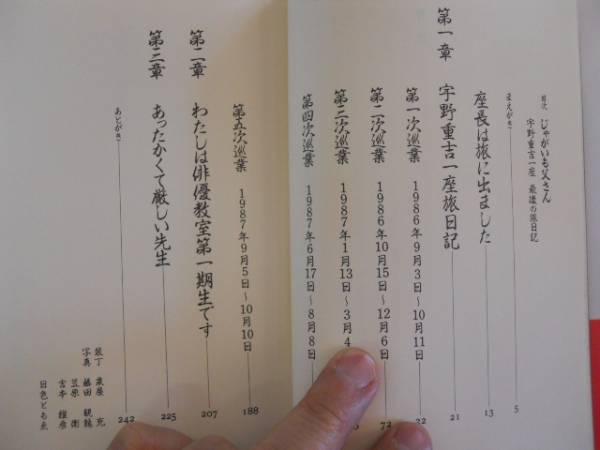 目次 じゃがいも父さん
宇野重吉一座 最後の旅日記
まえがき 5
座長は旅に出ました 13
第一章 宇野重吉一座旅日記 21
第一次巡業 1986年9月3日~10月11日 22
第二次巡業 1986年10月15日~12月6日 72
第三次巡業 1987年1月13日~3月4
第四次巡業 1987年6月17日~8月8日
第五次巡業 1987年9月5日~10月10日 188
第二章 わたしは俳優教室第一期生です 207
第三章 あったかくて厳しい先生 225
あとがき 242
装丁 充
写真 藤田 観龍
笠原 衛
日色ともゑ